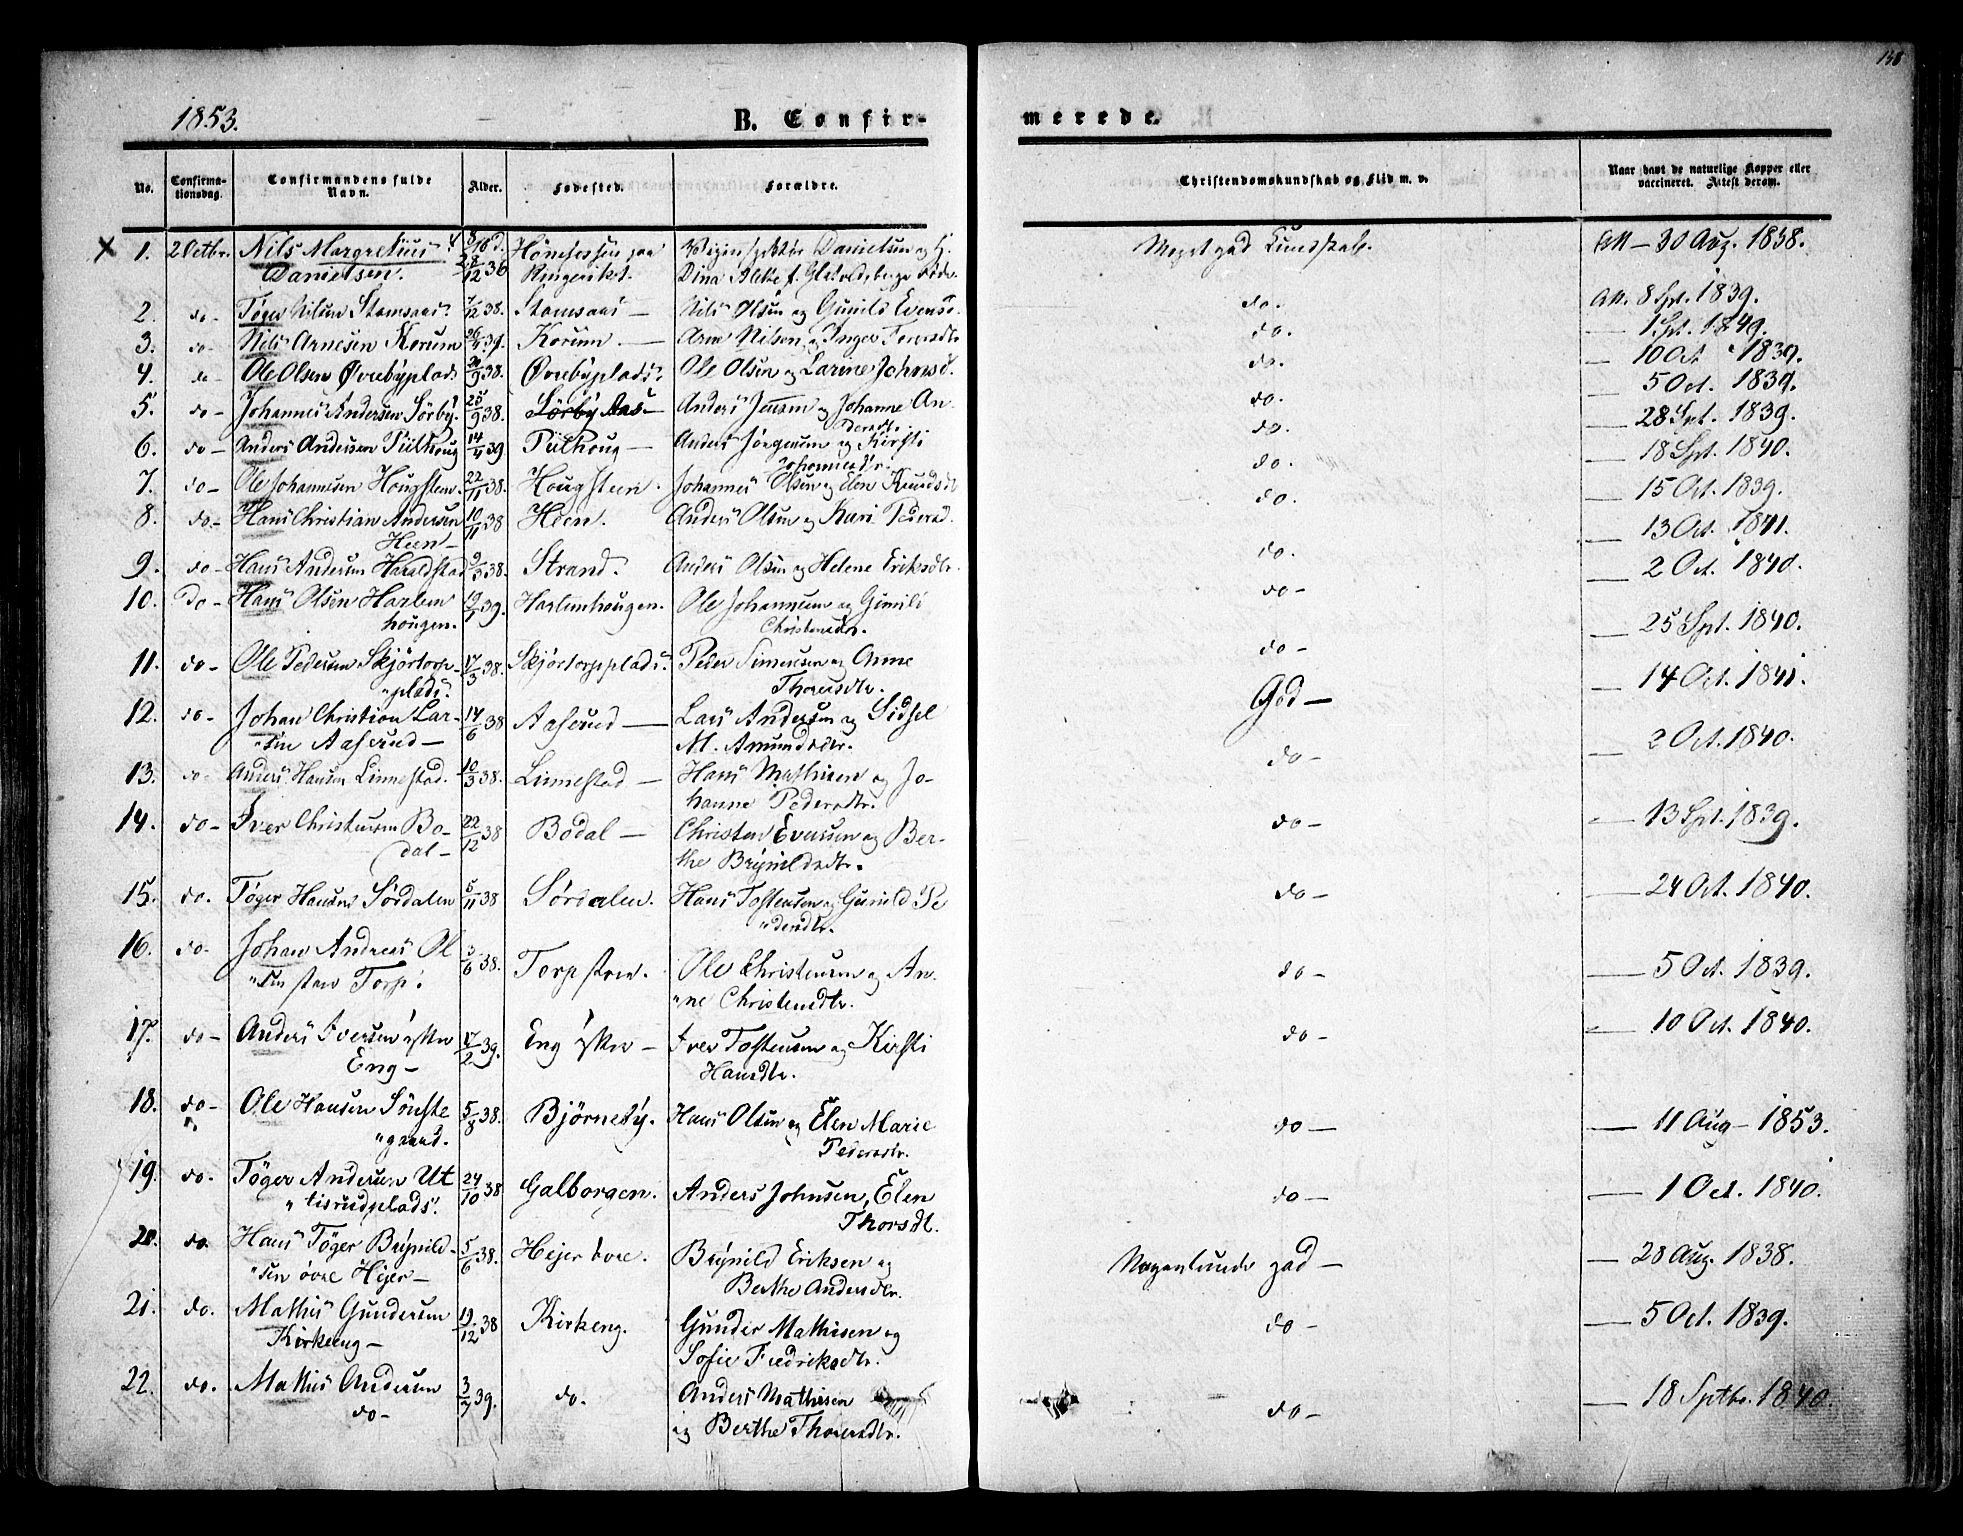 158
1853.
B. Confirmerede.
No. Confirmationsdag. Confirmandens fulde Navn. Alder. Fødested. Forældre. Christendomskundskab og Flid m. v. Naar havt de naturlige Kopper eller vaccineret. Attest derom.
X 1. 2 Octbr. Nils Margretius Danielsen. 28/12 36 Hønefossen paa Ringeriket. Danielsen og H. Dina Meget god Kundskab. Att — 30 Aug. 1838.
2. do — Töger Nilsen Stamsaas 7/12 38. Stamsaas — Nils Olsen og Gunild Evensd. do. Att. 8 Spt. 1839.
3. do — Nils Arnesen Korum 26/4 39. Korum. — Arne Nilsen og Inger Toresdtr do. — 1 Spt. 1849.
4. do — Ole Olsen Øvrebyplads 20/9 38. Øvrebyplads. Ole Olsen og Larine Johnsd. do. — 10 Oct 1839.
5. do — Johannes Andersen Sörby 25/9 38. Sörby Aas — Anders Jensen og Johanne Andersdtr. do. — 5 Oct. 1839.
6. do — Anders Andersen Piilhoug 14/4 39 Piilhoug — Anders Jörgensen og Kirsti Johannesdtr. do. — 28 Spt. 1839.
7. do — Ole Johannesen Hougsteen. 22/11 38. Hougsteen. Johannes Olsen og Elen Knudsdtr do. — 18 Spt. 1840.
8. do — Hans Christian Andersen Heen — 10/11 38 Heen. Anders Olsen og Kari Pedersd. do. — 15 Oct. 1839.
9. do — Hans Andersen Haraldstad 9/3 38. Strand. Anders Olsen og Helene Eriksdtr. do. — 13 Oct. 1841.
10. Do — Hans Olsen Harlemhougen. 19/1 39. Harlemhougen. Ole Johannesen og Gunild Christensdtr. do — — 2 Oct. 1840.
11. do — Ole Pedersen Skjörtorpplads. 17/3 38. Skjörtorpplads. Peder Simensen og Anne Thoresdtr. do — — 25 Spt. 1840.
12. do — Johan Christian Larsen Aaserud — 14/6 38 Aaserud — Lars Andersen og Sidsel M. Amundsdtr. God — — 14 Oct. 1841.
13. do — Anders Hansen Linnestad. 10/3 38. Linnestad — Hans Mathisen og Johanne Pedersdtr. do — — 2 Oct. 1840.
14. do — Iver Christensen Bodal — 22/12 38 Bodal — Christen Eversen og Berthe Brynildsdtr. do — — 13 Spt. 1839.
15. do. Töger Hansen Sördalen 5/11 38 Sördalen. Hans Tostensen og Gunild Pedersdtr. do — — 24 Oct. 1840.
16. do — Johan Andreas Olsen Torp. 3/6 38. Ole Christensen og Anne Christensdtr. do — — 5 Oct. 1839.
17. do — Anders Iversen Eng — 17/2 39. Eng — Iver Tostensen og Kirsti Hansdtr. do — — 10 Oct. 1840.
18. do — Ole Hansen Sönstegaard. 5/8 38. Björneby. Hans Olsen og Elen Marie Pedersdtr. do — — 11 Aug — 1853.
19. do. Töger Andersen Uttisrudplads. 24/10 38 Galborgen. Anders Johnsen, Elen Thorsdt. do — — 1 Oct. 1840.
20. do. Hans Töger Brynildsen övre Hejer — 5/6 38. Hejer övre. Brynild Eriksen og Berthe Andersdtr. Nogenlunde god — — 28 Aug. 1838.
21. do. Mathis Gundersen Kirkeng — 19/12 38 Kirkeng. Gunder Mathisen og Sofie Fredriksdtr. do — — 5 Oct. 1839.
22. do. Mathis Andersen do — 3/7 39. do. Anders Mathisen og Berthe Thoresdtr. do — — 18 Sptbr. 1840.